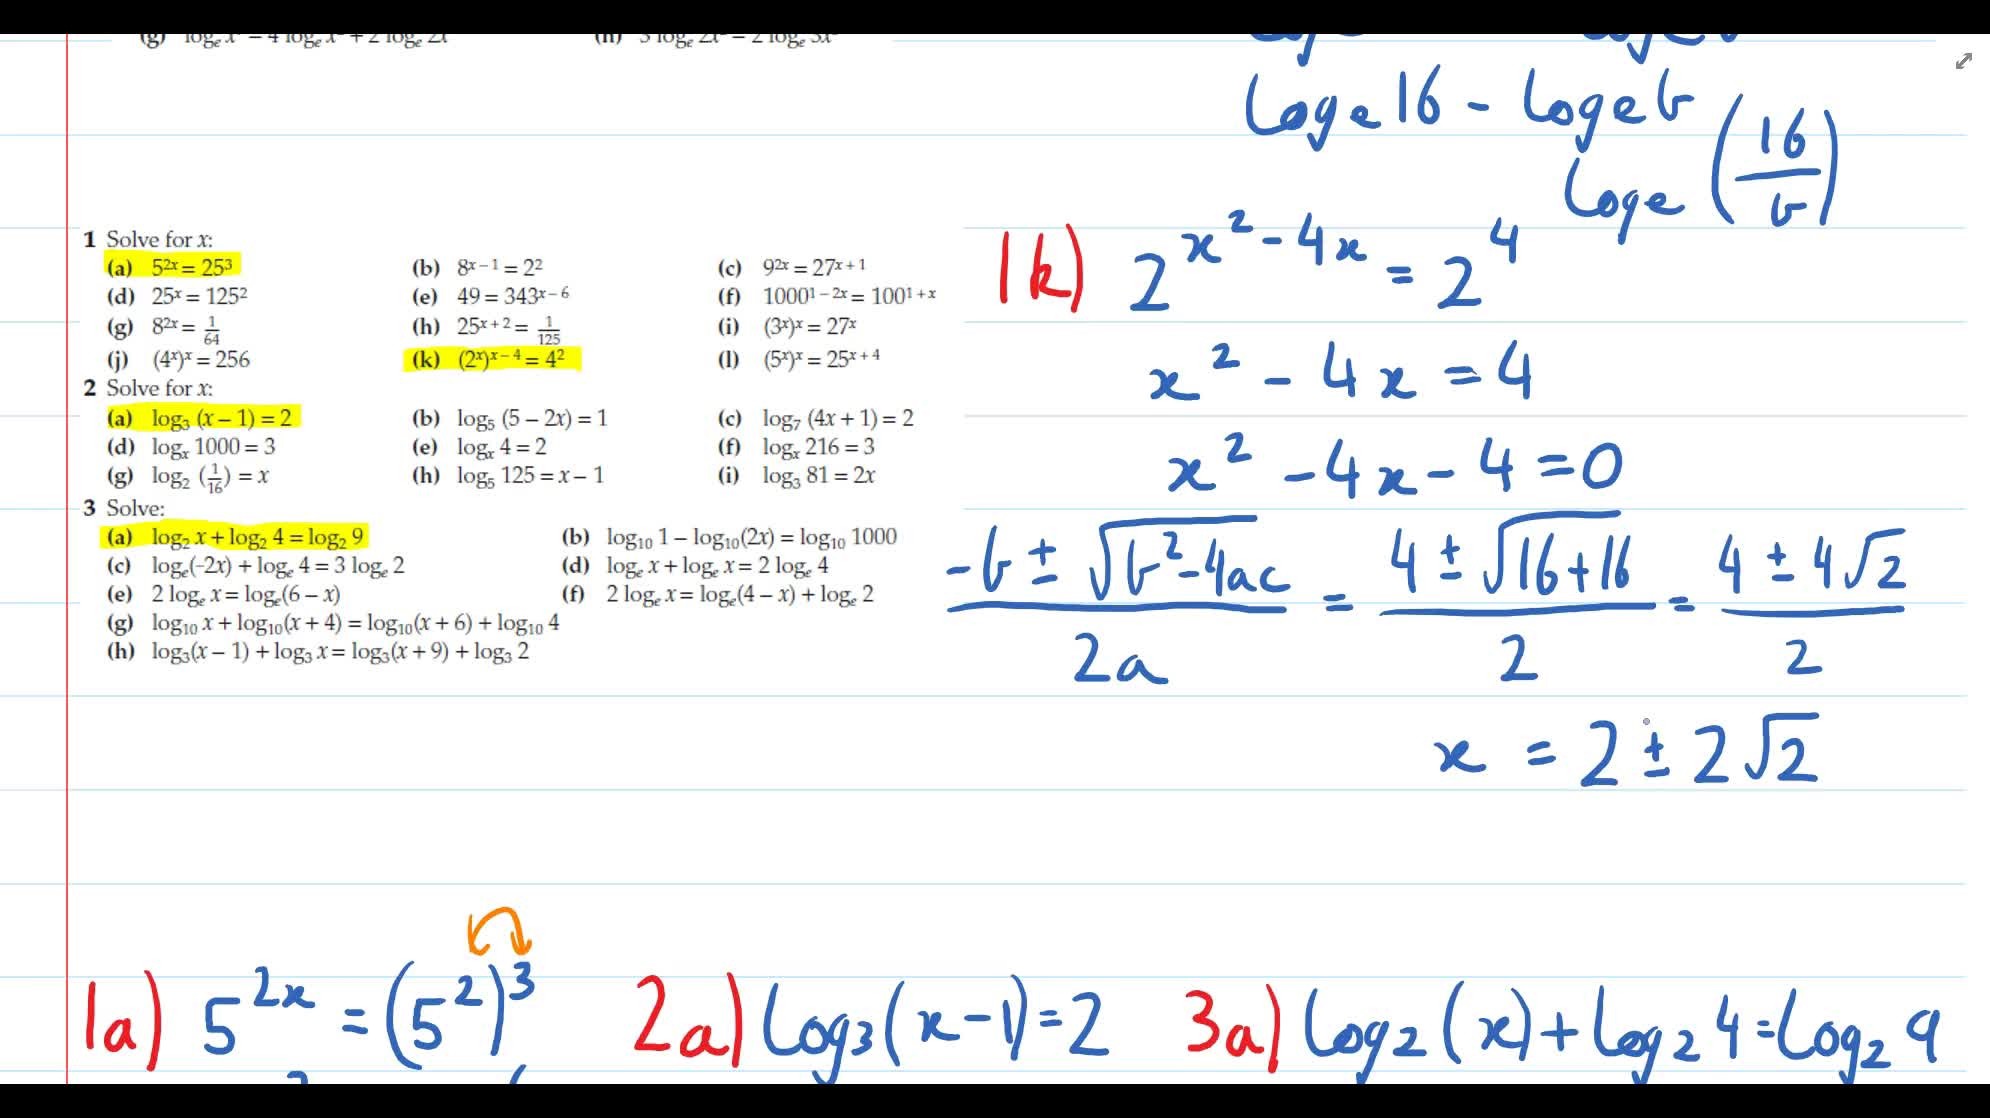 (g) logₑ x = 4 logₑ x + 2 logₑ 2x (h) 3 logₑ 2x = 2 logₑ 3x
logₑ 16 - logₑ b
logₑ (16/b)
1 Solve for x:
(a) 5²ˣ = 25³ (b) 8ˣ⁻¹ = 2² (c) 9²ˣ = 27ˣ⁺¹
(d) 25ˣ = 125² (e) 49 = 343ˣ⁻⁶ (f) 1000¹⁻²ˣ = 100¹⁺ˣ
(g) 8²ˣ = 1/64 (h) 25ˣ⁺² = 1/125 (i) (3ˣ)ˣ = 27ˣ
(j) (4ˣ)ˣ = 256 (k) (2ˣ)ˣ⁻⁴ = 4² (l) (5ˣ)ˣ = 25ˣ⁺⁴
2 Solve for x:
(a) log₃ (x – 1) = 2 (b) log₅ (5 – 2x) = 1 (c) log₇ (4x + 1) = 2
(d) logₓ 1000 = 3 (e) logₓ 4 = 2 (f) logₓ 216 = 3
(g) log₂ (1/16) = x (h) log₅ 125 = x – 1 (i) log₃ 81 = 2x
3 Solve:
(a) log₂ x + log₂ 4 = log₂ 9 (b) log₁₀ 1 – log₁₀(2x) = log₁₀ 1000
(c) logₑ(–2x) + logₑ 4 = 3 logₑ 2 (d) logₑ x + logₑ x = 2 logₑ 4
(e) 2 logₑ x = logₑ(6 – x) (f) 2 logₑ x = logₑ(4 – x) + logₑ 2
(g) log₁₀ x + log₁₀(x + 4) = log₁₀(x + 6) + log₁₀ 4
(h) log₃(x – 1) + log₃ x = log₃(x + 9) + log₃ 2
1k) 2^(x² - 4x) = 2⁴
x² - 4x = 4
x² - 4x - 4 = 0
(-b ± √(b² - 4ac))/2a = (4 ± √(16+16))/2 = (4 ± 4√2)/2
x = 2 ± 2√2
1a) 5²ˣ = (5²)³ 2a) log₃(x-1) = 2 3a) log₂(x) + log₂ 4 = log₂ 9